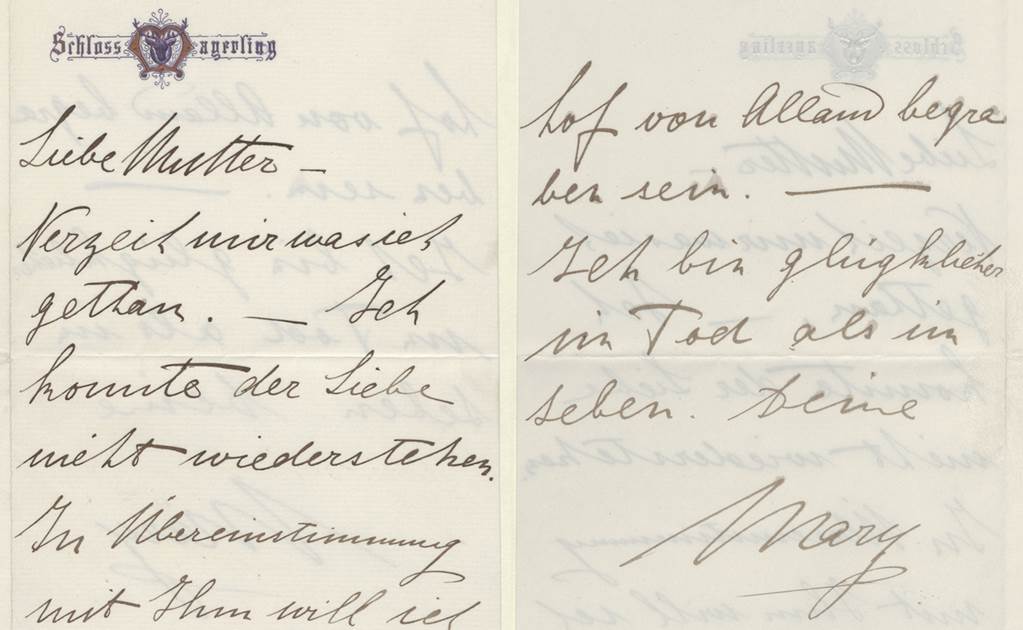 Schloss Mayerling
Liebe Mutter –
Verzeih mir was ich
gethan. — Ich
konnte der Liebe
nicht wiederstehen.
In Übereinstimmung
mit Ihm will ich
hof von Alland begra
ben sein. ———
Ich bin glügklicher
im Tod als im
Leben. Deine
Mary